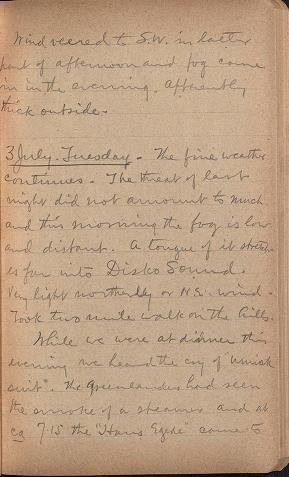 Wind veered to S.W. in latter
part of afternoon and fog came
in in the evening. Apparently
thick outside.
3 July. Tuesday. The fine weather
continues. The threat of last
night did not amount to much
and this morning the fog is low
and distant. A tongue of it stretch-
es far into Disko Sound.
Very light northerly or N.E. wind.
Took two mile walk on the hills.
While we were at dinner this
evening we heard the cry of "Umiak
suit". The Greenlanders had seen
the smoke of a steamer and at
ca 7.15 the "Hans Egede" came to